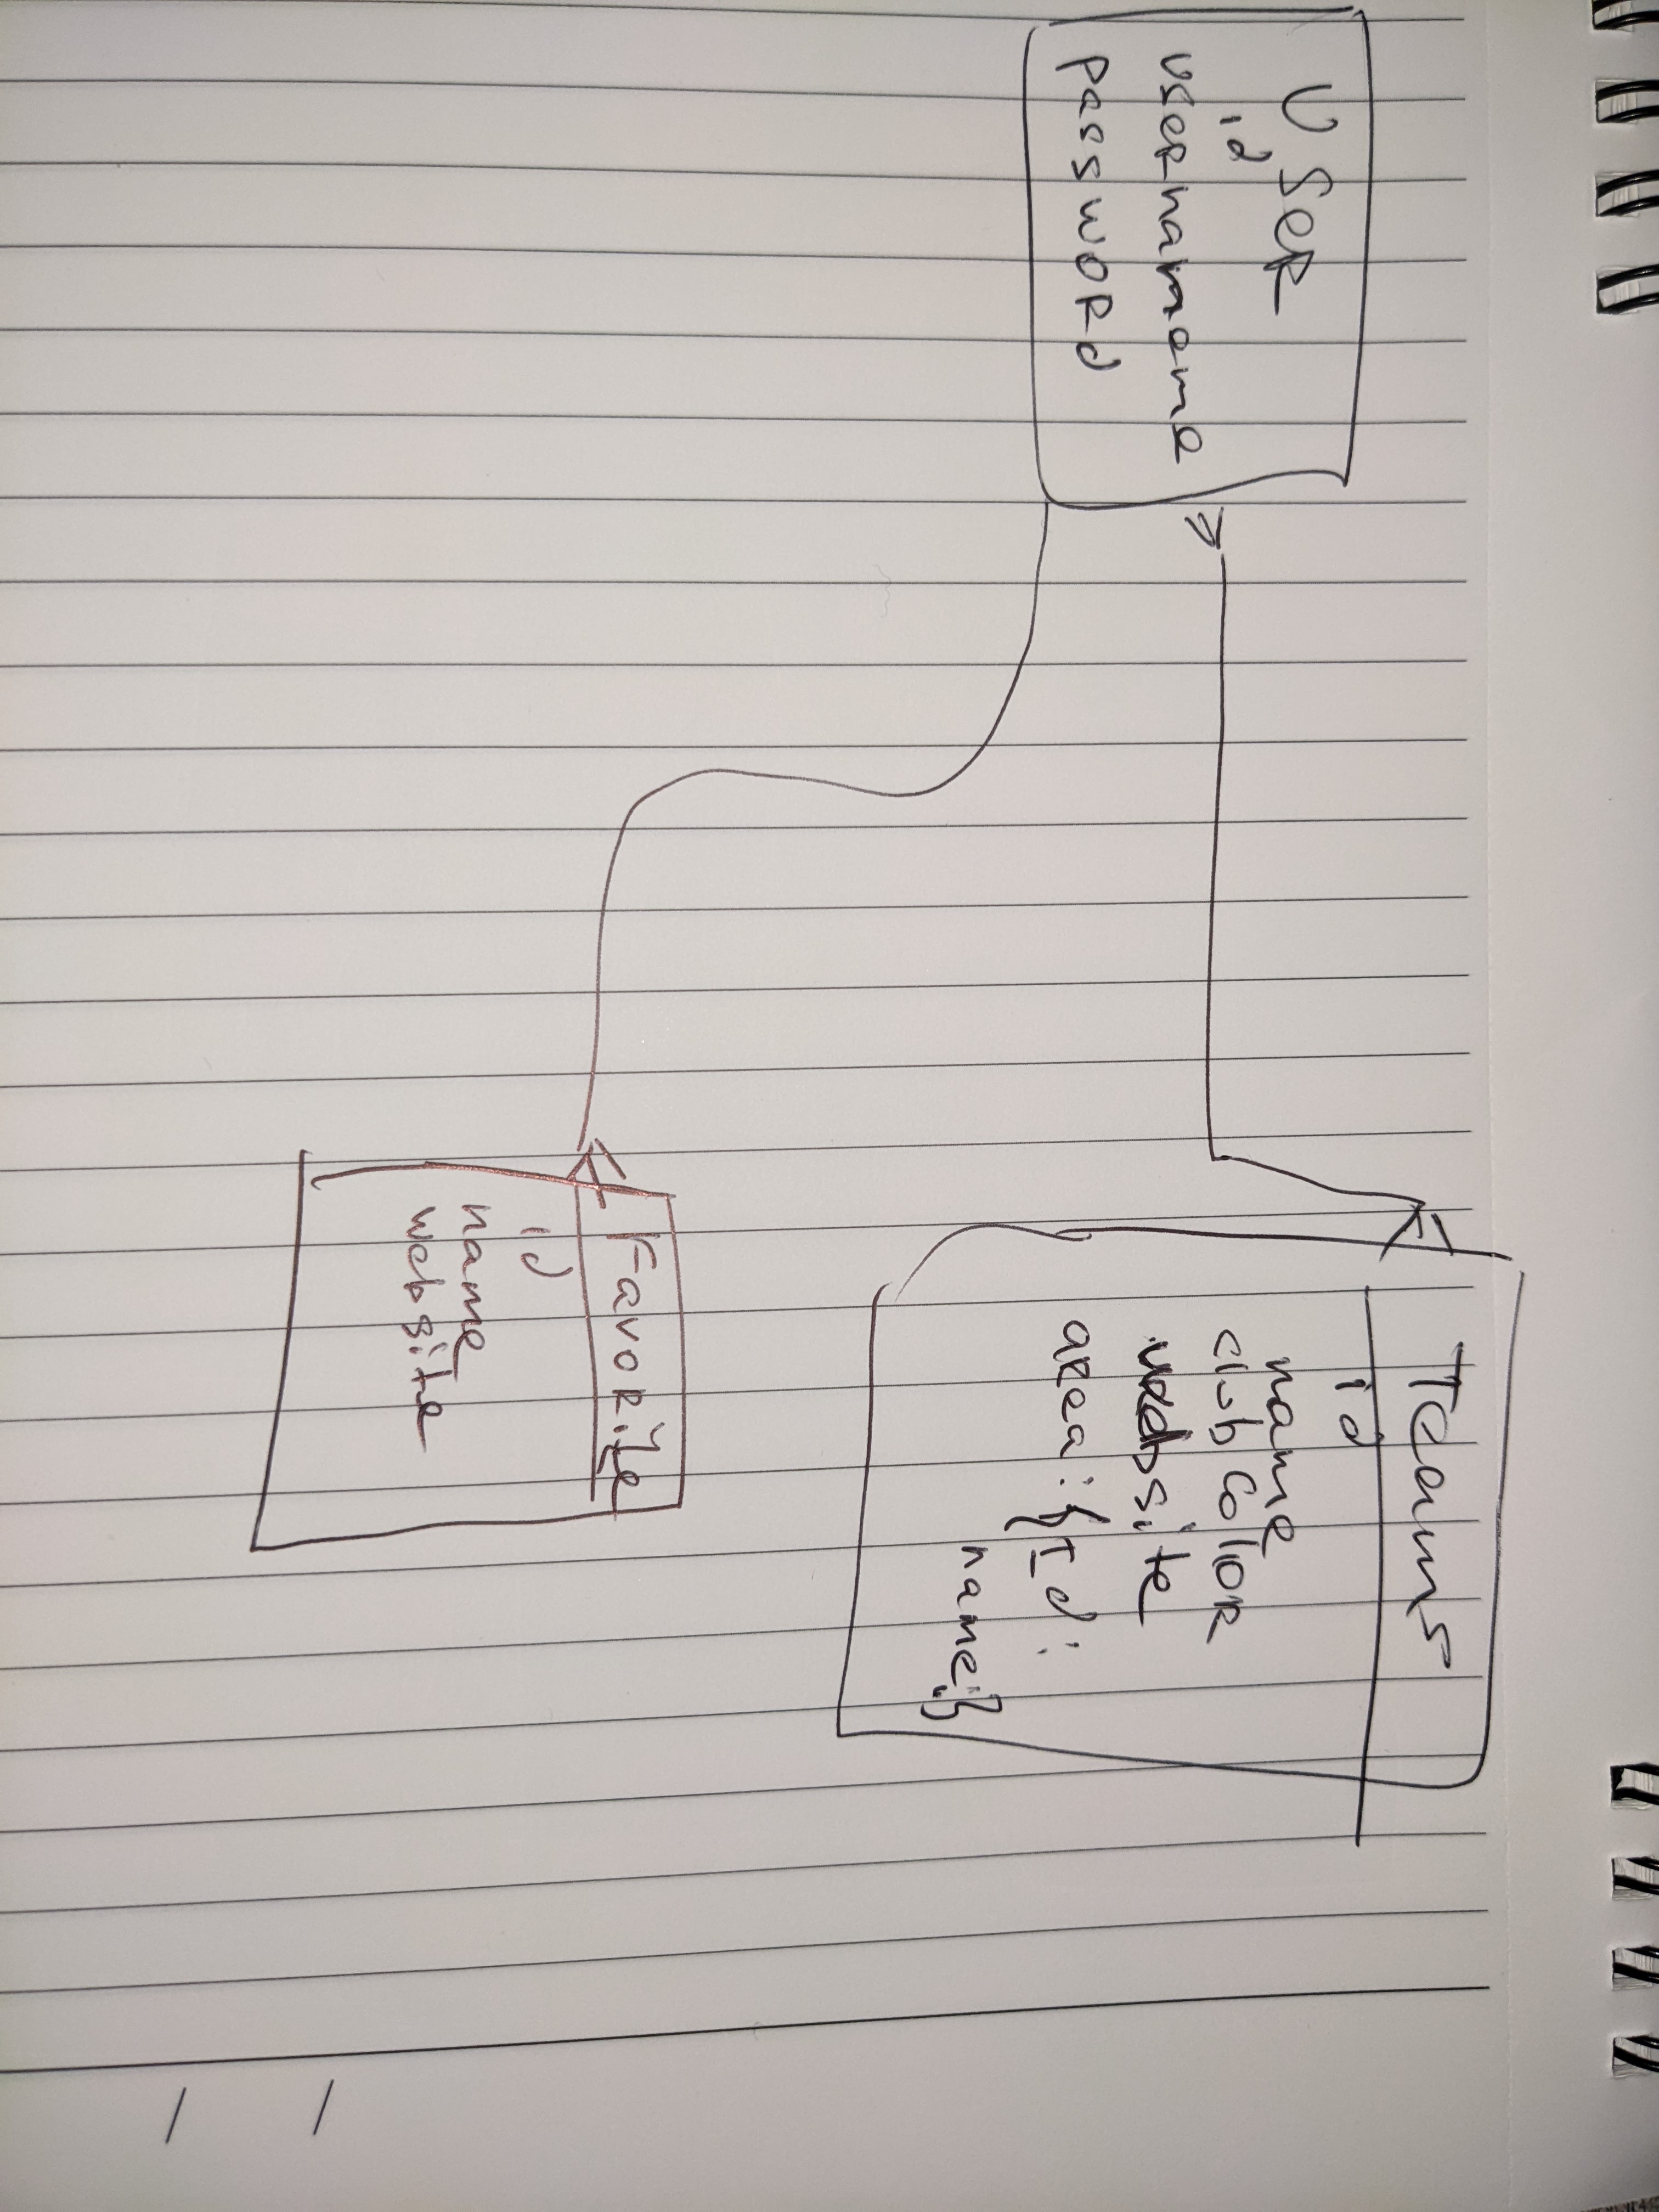 User
id
usernameme
password
Teams
id
name
club Color
website
area: {Id:
name:}
Favorite
id
name
website